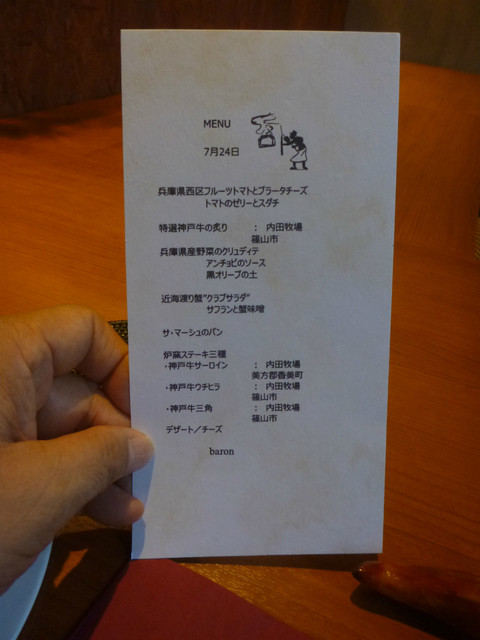 MENU
7月24日
兵庫県西区フルーツトマトとブラータチーズ
トマトのゼリーとスダチ
特選神戸牛の炙り ： 内田牧場
篠山市
兵庫県産野菜のクリュディテ
アンチョビのソース
黒オリーブの土
近海渡り蟹"クラブサラダ"
サフランと蟹味噌
サ・マーシュのパン
炉窯ステーキ三種
・神戸牛サーロイン ： 内田牧場
美方郡香美町
・神戸牛ウチヒラ ： 内田牧場
篠山市
・神戸牛三角 ： 内田牧場
篠山市
デザート／チーズ
baron